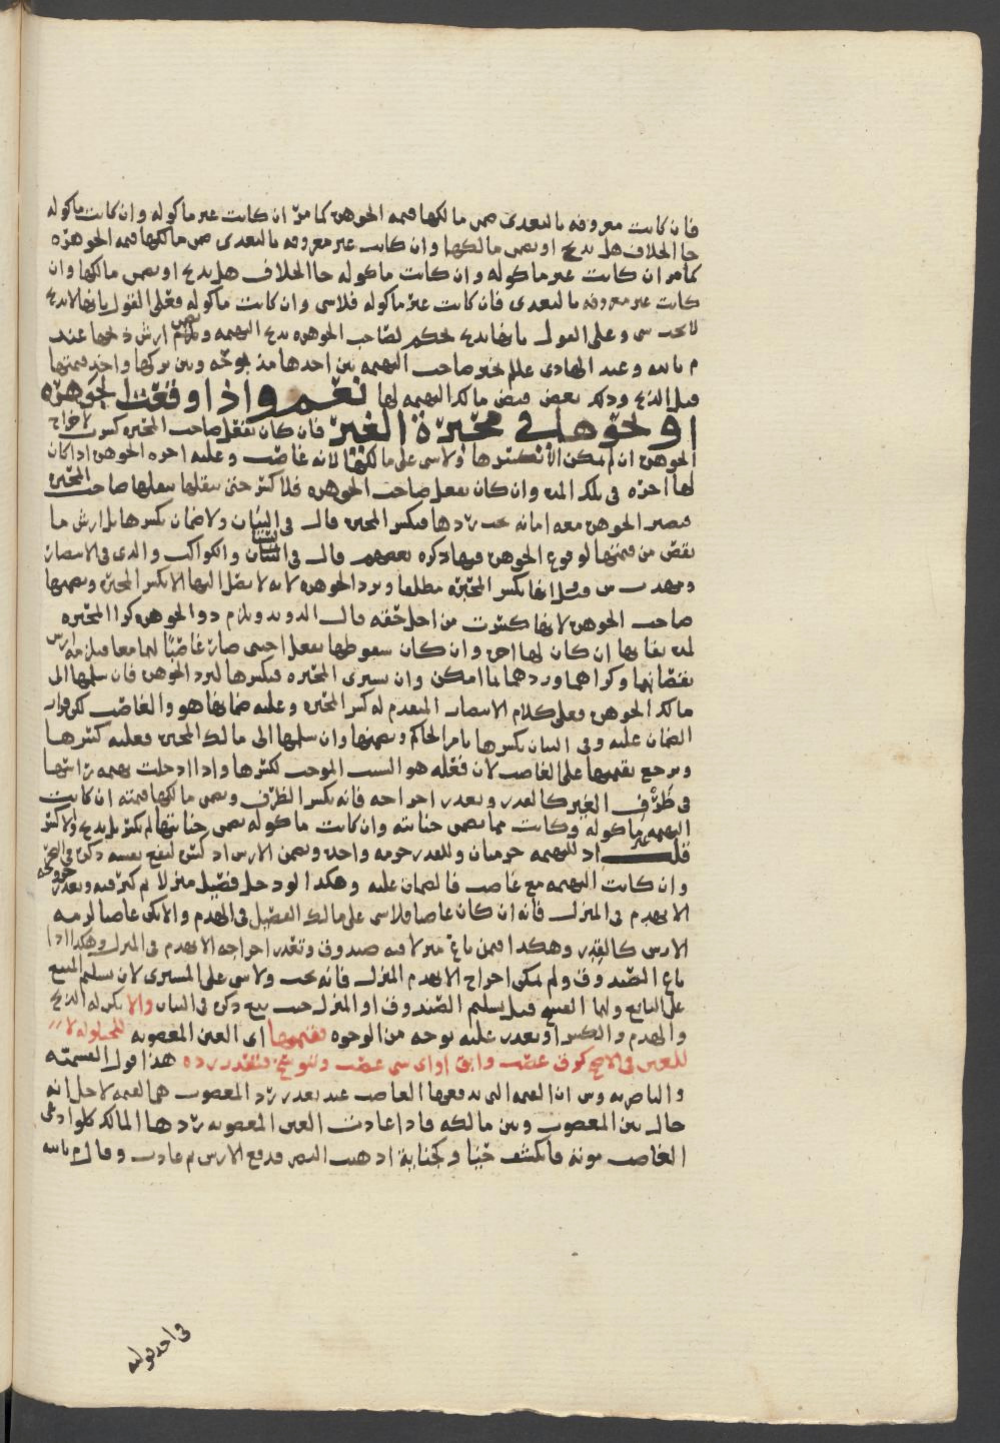 فان كانت معروفه بالتعدى ضمن مالكها قيمه الجوهره كما مر ان كانت غير ماكوله وان كانت ماكوله
جا الخلاف هل تذبح او يضمن مالكها وان كانت غير معروفه بالتعدى ضمن مالكها قيمه الجوهره
كما مر ان كانت غير ماكوله وان كانت ماكوله جا الخلاف هل تذبح او يضمن مالكها وان
كانت غير معروفه بالتعدى فان كانت غير ماكوله فلا شى وان كانت ماكوله فعلى القول بانها لا تذبح
لا يجب شى وعلى القول بانها تذبح يحكم لصاحب الجوهره بذبح البهيمه ويضمن ارش ذبحها عند
م بالله وعند الهادى عللم يخير صاحب البهيمه بين اخذها مذبوحه وبين تركها واخذ قيمتها
قبل الذبح وذكر بعض قبض مالك البهيمه لها نعم واذا وقعت الجوهره
او نحوها فى محبرة الغير فان كان بفعل صاحب المحبره كسرت لاخراج
الجوهره ان لم يمكن الا بكسرها ولا شى على مالكها لانه غاصب وعليه اجره الجوهره اذا كان
لها اجره فى تلك المده وان كان بفعل صاحب الجوهره فلا كسر حتى ينقلها بنقلها صاحب المحبره
فتصير الجوهره معه امانه يجب ردها فيكسر المحبره قال فى البيان ولا ضمان بكسرها بل ارش ما
نقص من قيمتها لوقوع الجوهره فيها ذكره بعضهم قال فى البيان والكواكب والذى فى الانتصار
ومهذب ش وقيل انها تكسر المحبره مطلقا وترد الجوهره لانه لا يصل اليها الا بكسر المحبره ويضمنها
صاحب الجوهره لانها كسرت من اجل حقه قال الدوارى ويلزم ذو الجوهره كرا المحبره
لمده بقائها ان كان لها اجره وان كان سقوطها بفعل اجنبى صار غاصبا لهما معا فيلزمه ارش
نقصانهما وكراهما وردهما بما امكن وان يشترى المحبره فيكسرها ليرد الجوهره فان سلمها الى
مالك الجوهره فعلى كلام الانتصار المتقدم له كسر المحبره وعليه ضمانها هو والغاصب لكن قرار
الضمان عليه وفى البيان يكسرها بامر الحاكم ويضمنها وان سلمها الى مالك المحبره فعليه كسرها
ويرجع بقيمتها على الغاصب لان فعله هو السبب الموجب لكسرها واذا ادخلت بهيمه راسها
فى ظرف الغير كالقدر وتعذر اخراجه فانه يكسر الظرف ويضمن مالكها قيمته ان كانت
البهيمه غير ماكوله وكانت مما يضمن جنايته وان كانت ماكوله يضمن جنايتها لم يكسر بل تذبح ولا كسر
قلت اذ للبهيمه حرمتان وللقدر حرمه واحده ويضمن الارش اذ كسر لنفع نفسه ذكره فى البحر
وان كانت البهيمه مع غاصب فالضمان عليه وهكذا لو دخل فصيل منزلا ثم كبر فيه وتعذر خروجه
الا بهدم فى المنزل فانه ان كان غاصبا فلا شى على مالك الفصيل فى الهدم والا يكن غاصبا لزمه
الارش كالقدر وهكذا فيمن باع منزلا فيه صندوق وتعذر اخراجه الا بهدم فى المنزل وهكذا اذا
باع الصندوق ولم يمكن اخراج الا بهدم المنزل فانه يجب ولا شى على المشترى لان تسليم المبيع
على البايع ولهما الفسخ قبل تسليم الصندوق او المنزل حيث بيع ذكره فى البيان والا يكن له الذبح
والهدم والكسر او تعذر عليه بوجه من الوجوه فقيمتها اى العين المغصوبه للحيلوله لا
للعين فى الاصح كمن غصب وابق او اى شى غصب وتنوسخ فتعذر رده هذا قول القسميه
والناصريه وش ان القيمه التى يدفعها الغاصب عند تعذر رد المغصوب هى القيمه لاجل انه
حال بين المغصوب وبين مالكه فاذا عادت العين المغصوبه ردها المالك كلو ادعى
الغاصب موته فانكشف حيا وكجناية اذهبت البصر فدفع الارش ثم عادت وقال م بالله
فى احد قوليه